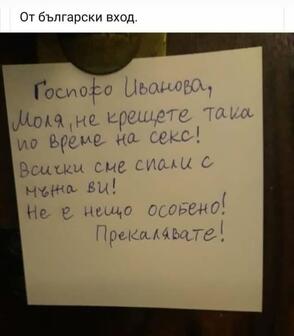 От български вход.
Госпофо Иванова,
Моля, не крещете така
по време на секс!
Всички сме спали с
мъжа ви!
Не е нещо особено!
Прекалявате!